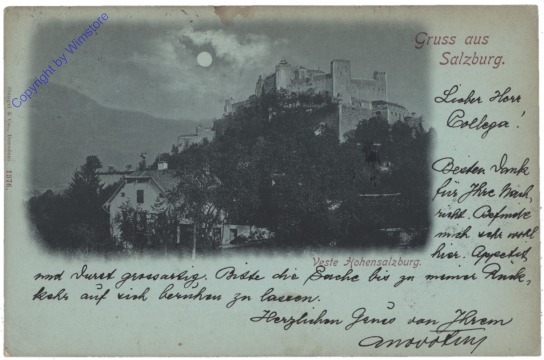 Copyright by Wimstore
Gruss aus
Salzburg.
Lieber Herr
Collega!
Besten Dank
für Ihre Nach,
richt. Befinde
mich sehr wohl
hier. Appetit
Veste Hohensalzburg.
und Durst grossartig. Bitte die Sache bis zu meiner Rück,
kehr auf sich beruhen zu lassen.
Herzlichen Gruss von Ihrem
1376